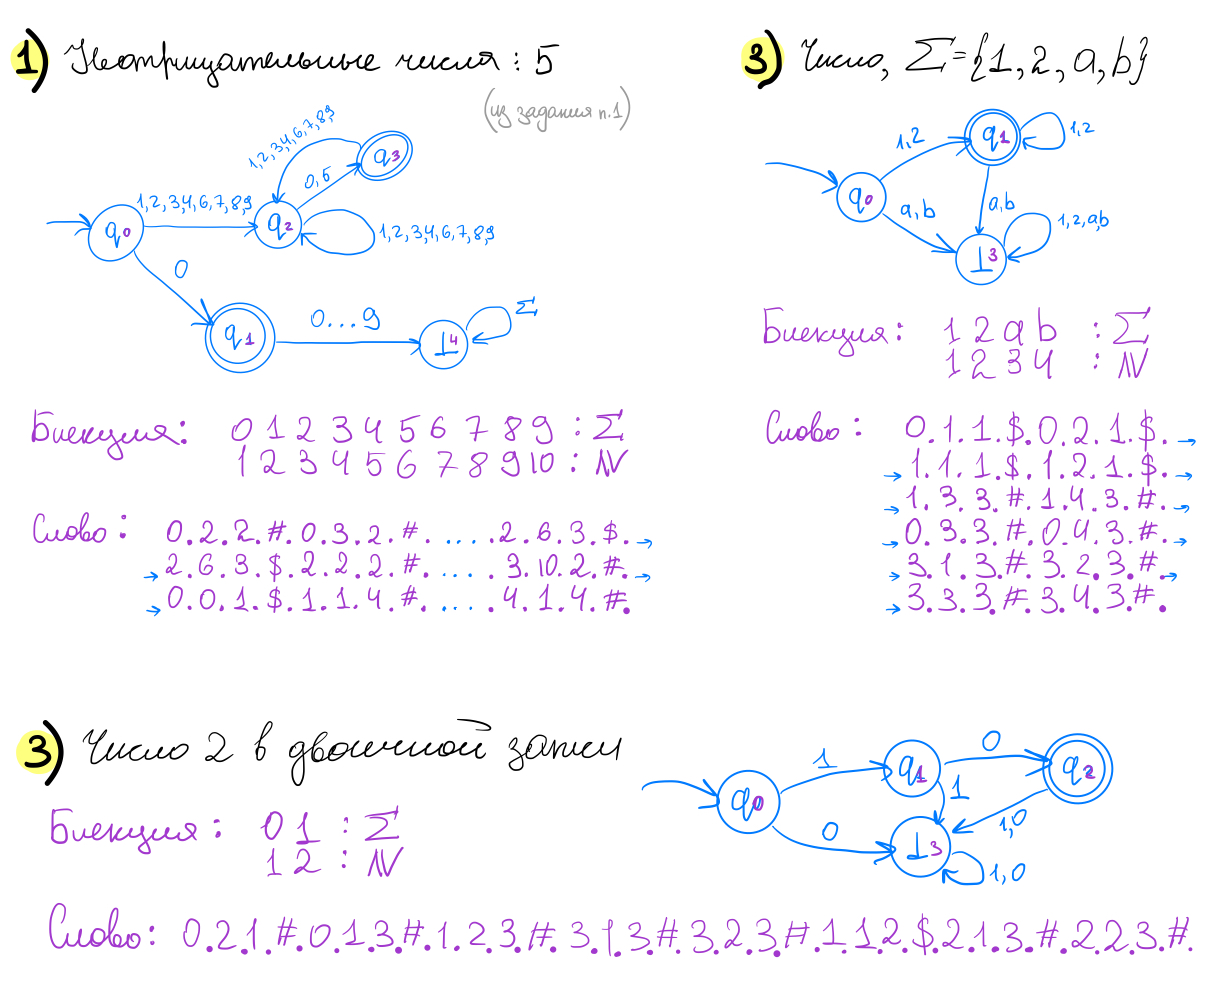 1) Неотрицательные числа : 5
(из задания п.1)
1,2,3,4,6,7,8,9
q3
0,5
1,2,3,4,6,7,8,9
q0
q2
1,2,3,4,6,7,8,9
0
q1
0...9
⊥4
Σ
Биекция: 0 1 2 3 4 5 6 7 8 9 : Σ
1 2 3 4 5 6 7 8 9 10 : N
Слово: 0.2.2.#.0.3.2.#. ... .2.6.3.$.→
→2.6.3.$.2.2.2.#. ... .3.10.2.#.→
→0.0.1.$.1.1.4.#. ... .4.1.4.#.
3) Число, Σ={1,2,a,b}
1,2
q1
1,2
q0
a,b
a,b
⊥3
1,2,a,b
Биекция: 1 2 a b : Σ
1 2 3 4 : N
Слово: 0.1.1.$.0.2.1.$.→
→1.1.1.$.1.2.1.$.→
→1.3.3.#.1.4.3.#.→
→0.3.3.#.0.4.3.#.→
→3.1.3.#.3.2.3.#.→
→3.3.3.#.3.4.3.#.
3) Число 2 в двоичной записи
1
q1
0
q2
q0
1
0
⊥3
1,0
1,0
Биекция: 0 1 : Σ
1 2 : N
Слово: 0.2.1.#.0.1.3.#.1.2.3.#.3.1.3.#.3.2.3.#.1.1.2.$.2.1.3.#.2.2.3.#.